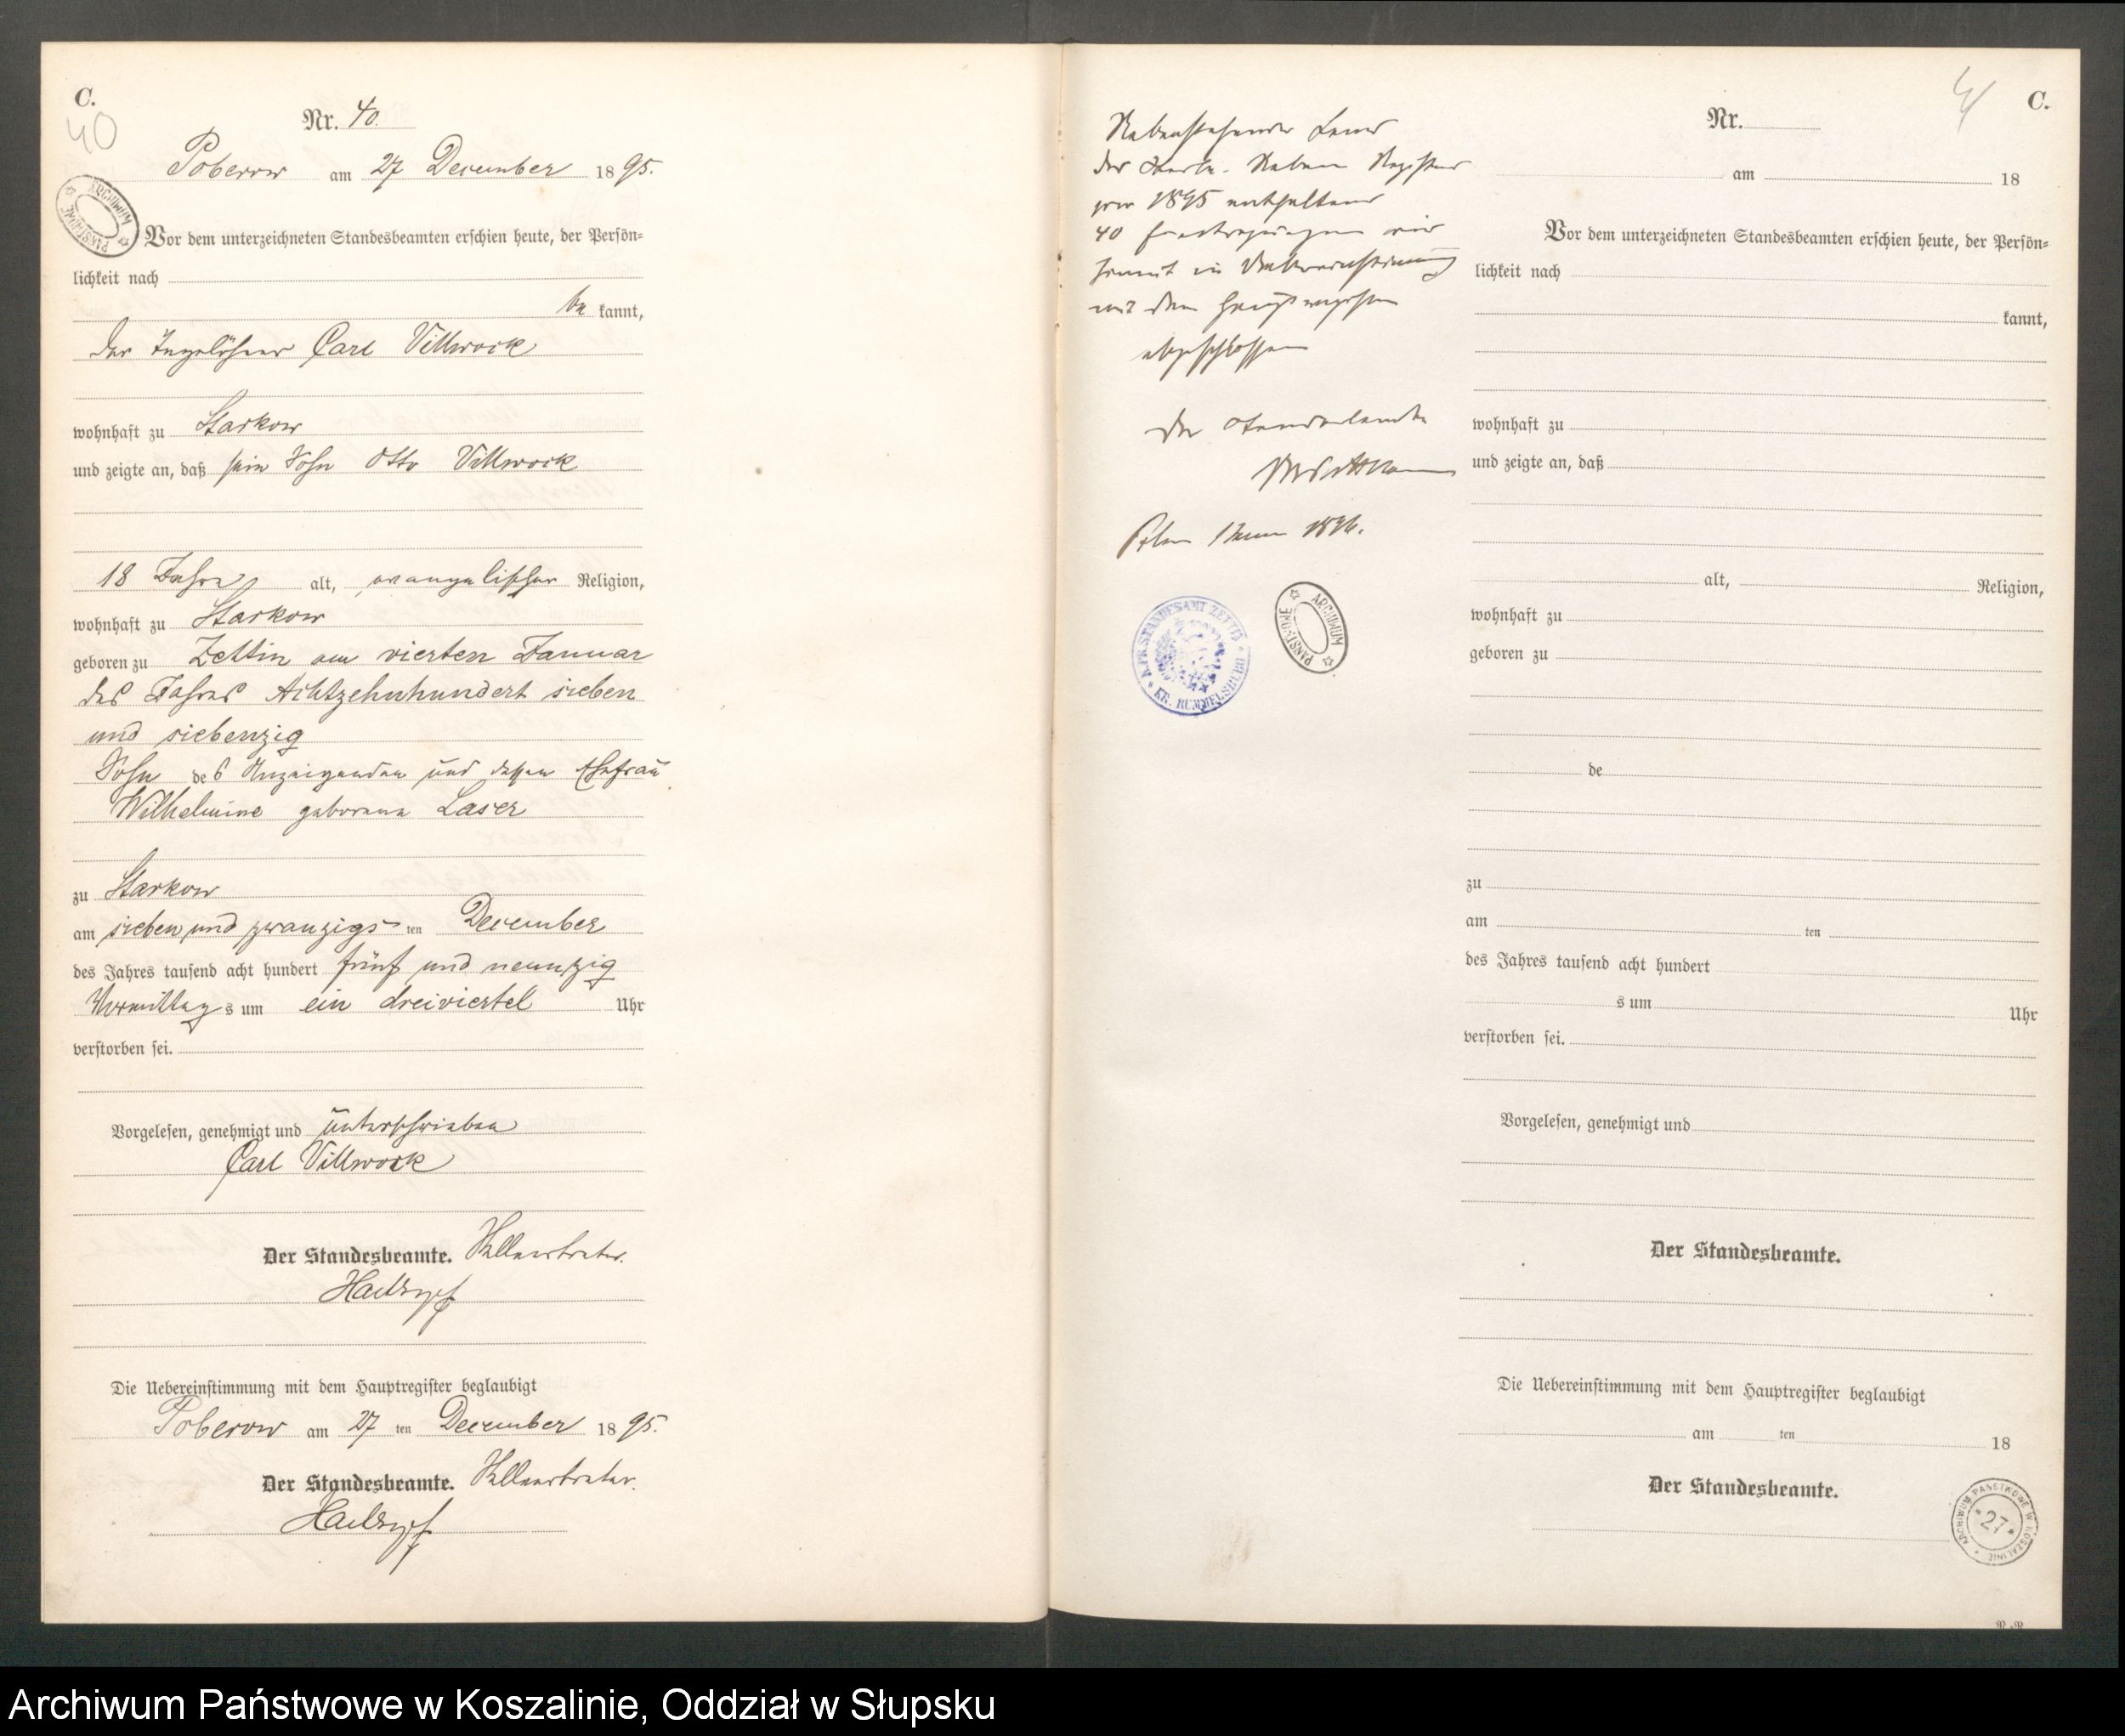 C.
40
Nr. 40.
Poberow am 27 December 1895.
ARCHIWUM PAŃSTWOWE
Vor dem unterzeichneten Standesbeamten erschien heute, der Persön=
lichkeit nach
be kannt,
der Tagelöhner Carl Villwock
wohnhaft zu Starkow
und zeigte an, daß sein Sohn Otto Villwock
18 Jahre alt, evangelischer Religion,
wohnhaft zu Starkow
geboren zu Zettin am vierten Januar
des Jahres Achtzehnhundert sieben
und siebenzig
Sohn des Anzeigenden und dessen Ehefrau
Wilhelmine geborene Laser
zu Starkow
am sieben und zwanzigsten December
des Jahres tausend acht hundert fünf und neunzig
Vormittags um ein dreiviertel Uhr
verstorben sei.
Vorgelesen, genehmigt und unterschrieben
Carl Villwock
Der Standesbeamte. Stellvertreter.
Die Uebereinstimmung mit dem Hauptregister beglaubigt
Poberow am 27 ten December 1895.
Der Standesbeamte. Stellvertreter.
Nebenstehender Band
des Sterbe-Neben Register
pro 1895 enthaltend
40 Eintragungen wird
hiermit in Uebereinstimmung
mit dem Hauptregister
abgeschlossen
Der Standesbeamte
1896.
K. PR. STANDESAMT ZETTIN
KR. RUMMELSBURG
ARCHIWUM PAŃSTWOWE
41
C.
Nr.
am 18
Vor dem unterzeichneten Standesbeamten erschien heute, der Persön=
lichkeit nach
kannt,
wohnhaft zu
und zeigte an, daß
alt, Religion,
wohnhaft zu
geboren zu
de
zu
am ten
des Jahres tausend acht hundert
s um Uhr
verstorben sei.
Vorgelesen, genehmigt und
Der Standesbeamte.
Die Uebereinstimmung mit dem Hauptregister beglaubigt
am ten 18
Der Standesbeamte.
ARCHIWUM PAŃSTWOWE W KOSZALINIE
*27*
Archiwum Państwowe w Koszalinie, Oddział w Słupsku